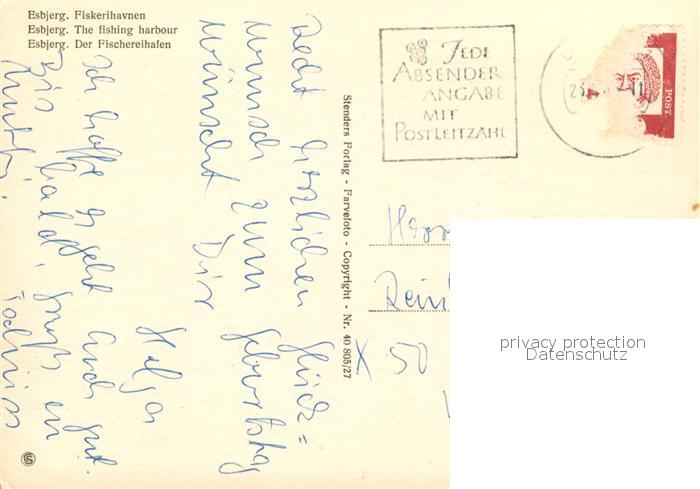 Esbjerg. Fiskerihavnen
Esbjerg. The fishing harbour
Esbjerg. Der Fischereihafen
JEDE
ABSENDER
ANGABE
MIT
POSTLEITZAHL
POST
Stenders Forlag - Farvefoto - Copyright - Nr. 40 805/27
Recht herzlichen Glück=
wunsch zum Geburtstag
wünscht Dir
Helga
Ich hoffe es geht Euch gut.
Bis bald,
Herr
X 50
privacy protection
Datenschutz